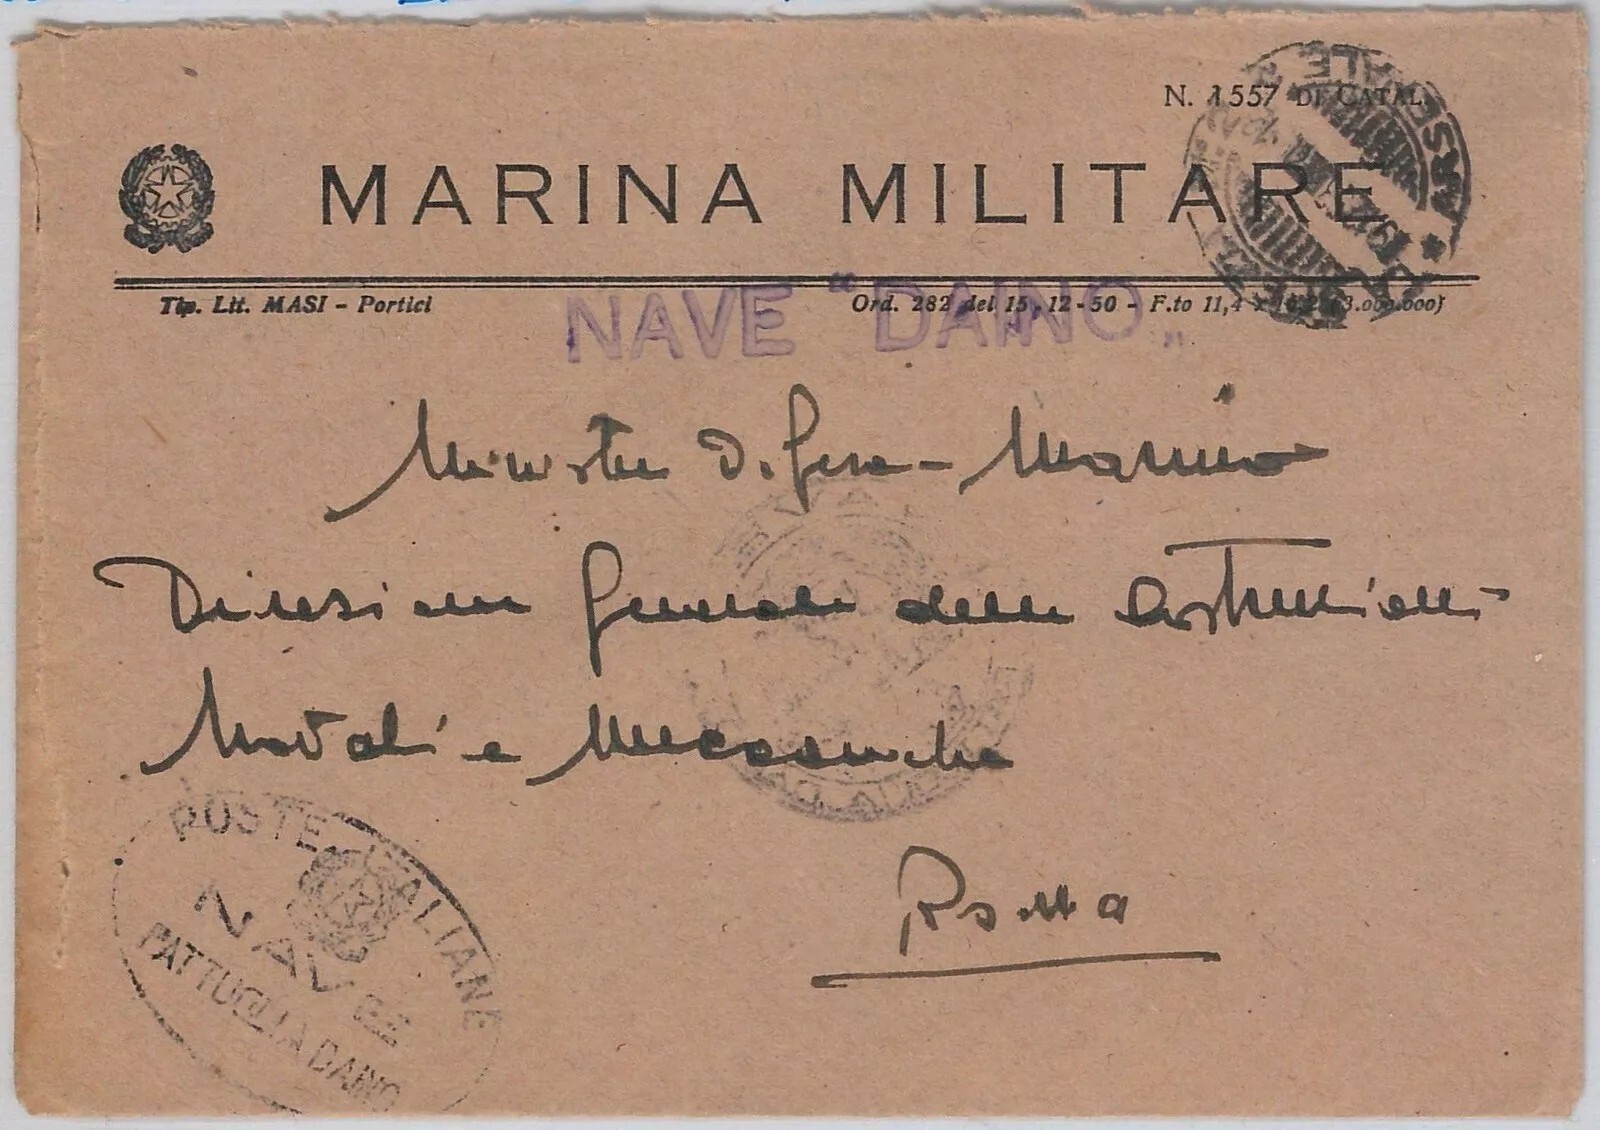 N. 1557 DI CATAL.
MARINA MILITARE
Tip. Lit. MASI - Portici
Ord. 282 del 15-12-50 - F.to 11,4 x 16,2 (3.000.000)
NAVE "DAINO"
Ministero Difesa - Marina
Direzione Generale delle Costruzioni
Navali e Meccaniche
Roma
POSTE ITALIANE
NAVE
PATTUGLIA DAINO